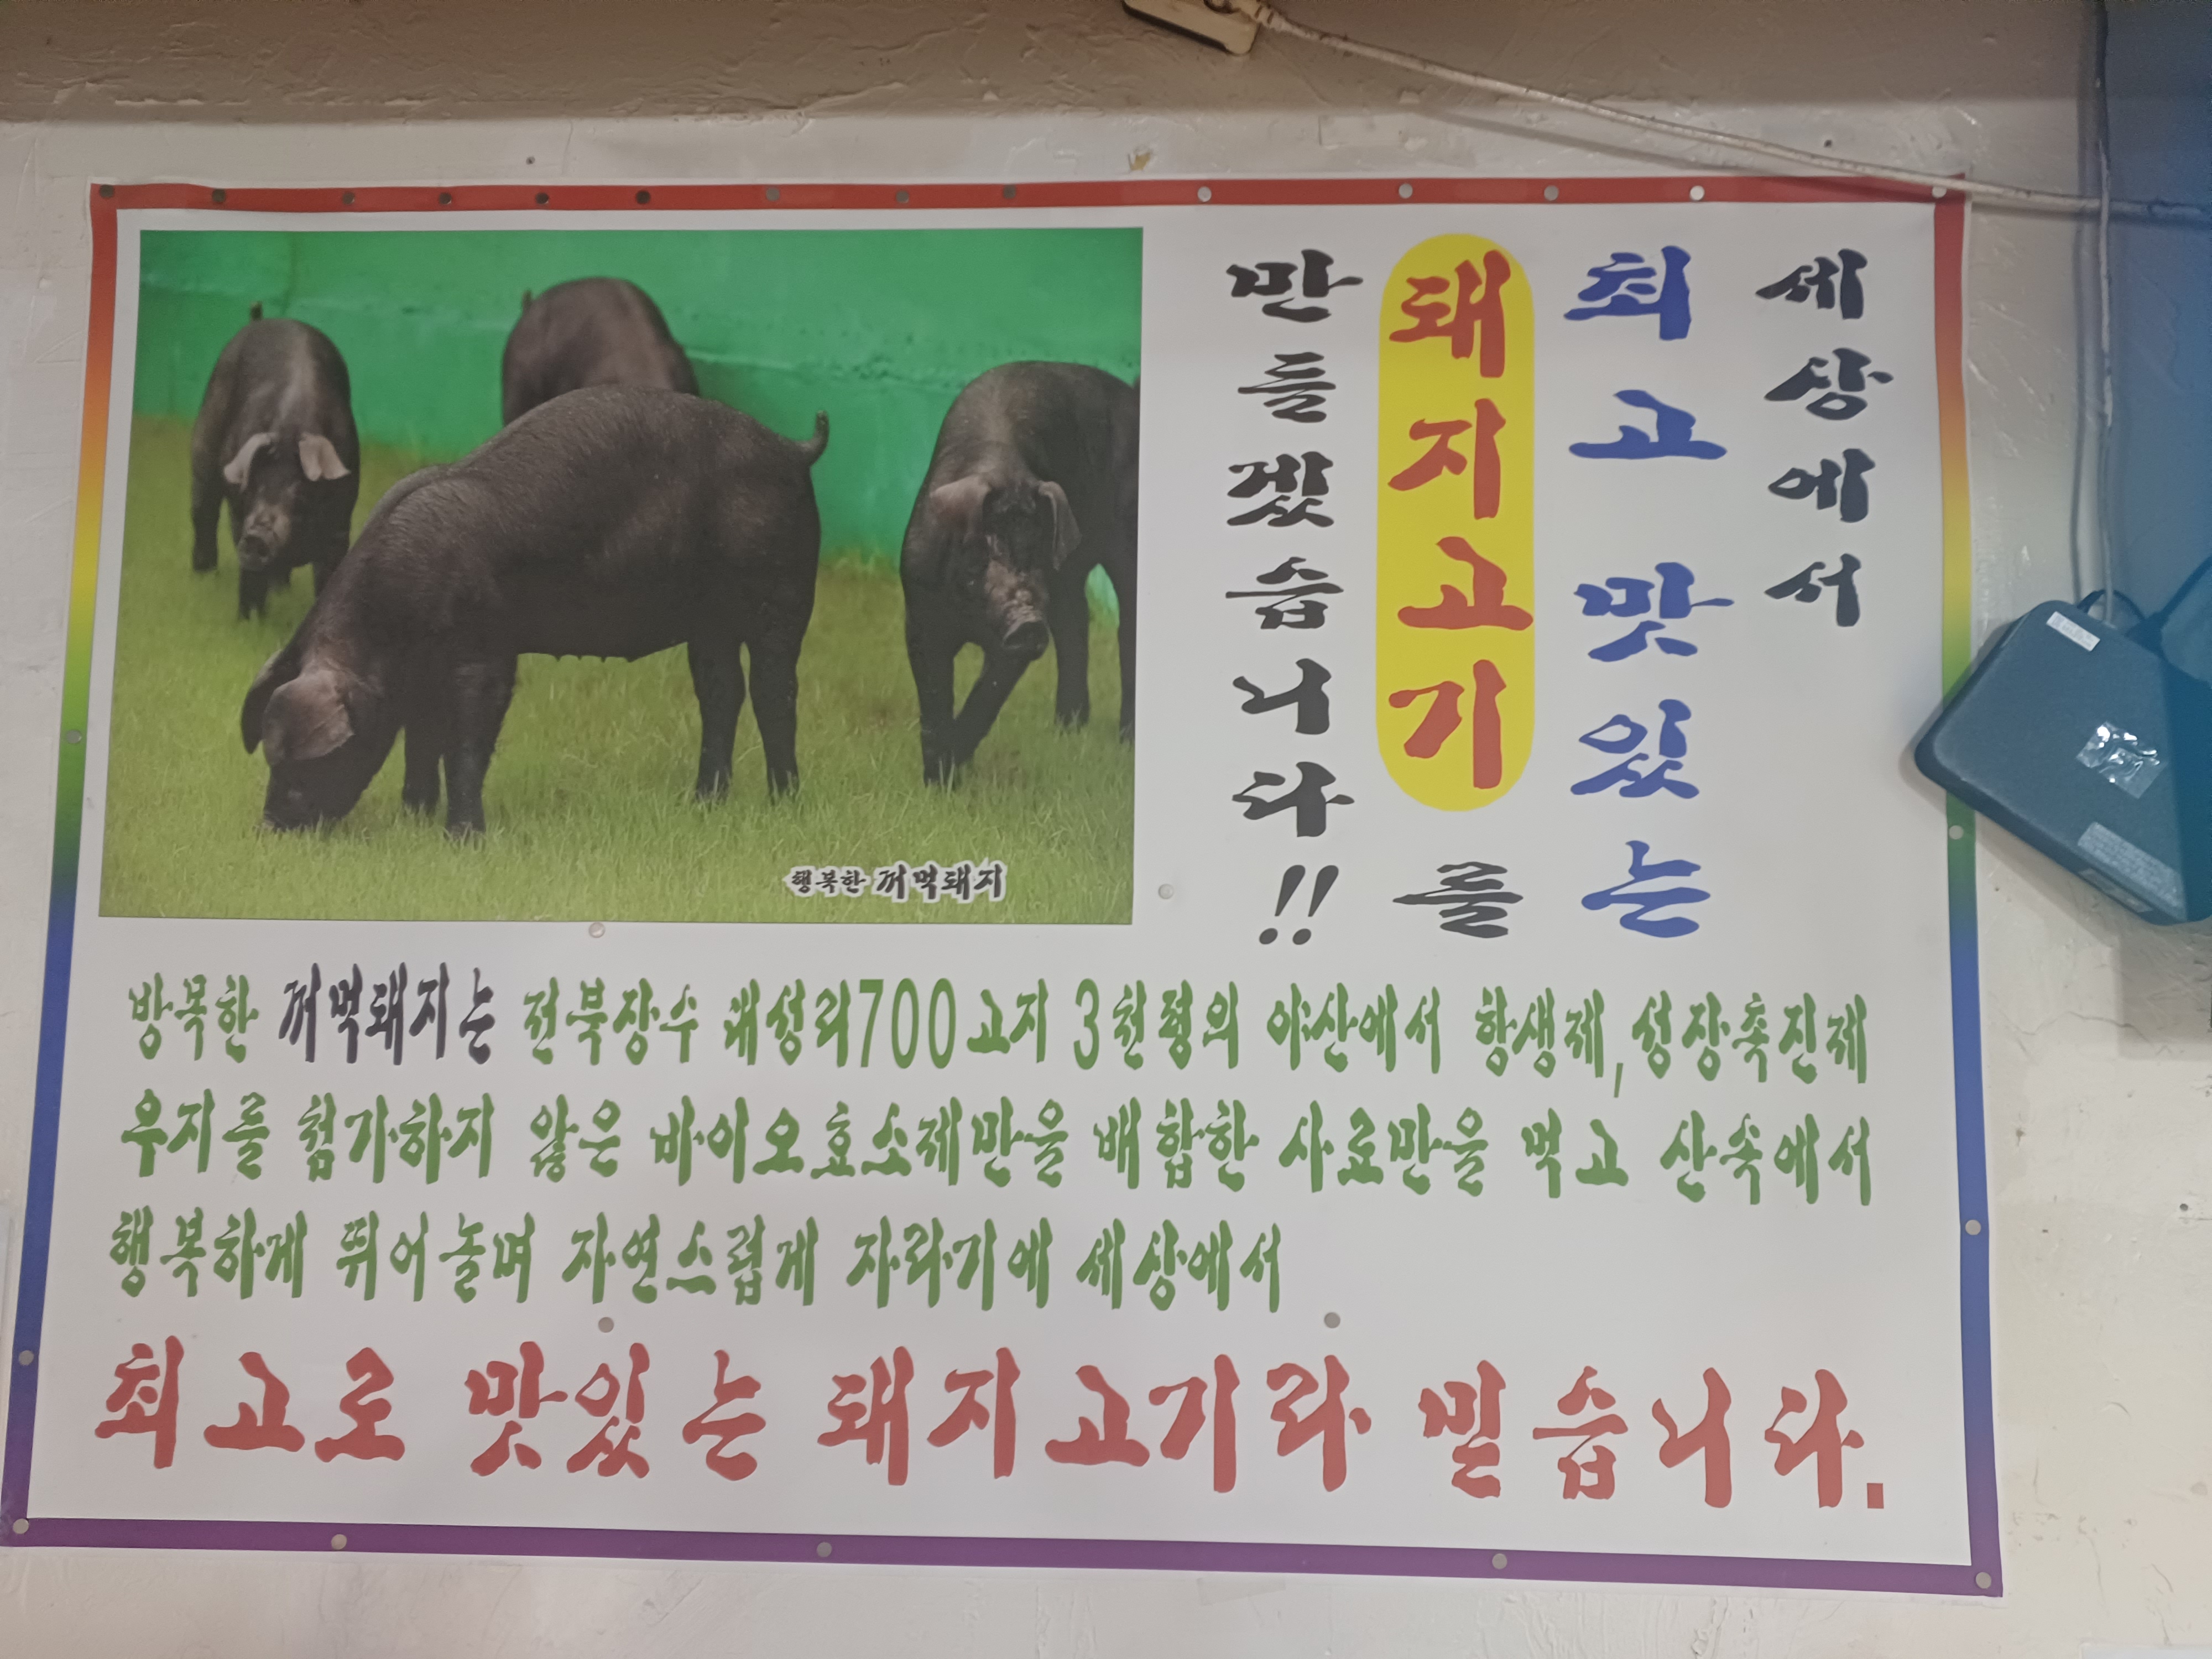 세상에서
최고 맛있는
돼지고기를
만들겠습니다!!
행복한 꺼먹돼지
방목한 꺼먹돼지는 전북장수 대성리700고지 3천평의 야산에서 항생제,성장촉진제
우지를 첨가하지 않은 바이오효소제만을 배합한 사료만을 먹고 산속에서
행복하게 뛰어놀며 자연스럽게 자라기에 세상에서
최고로 맛있는 돼지고기라 믿습니다.